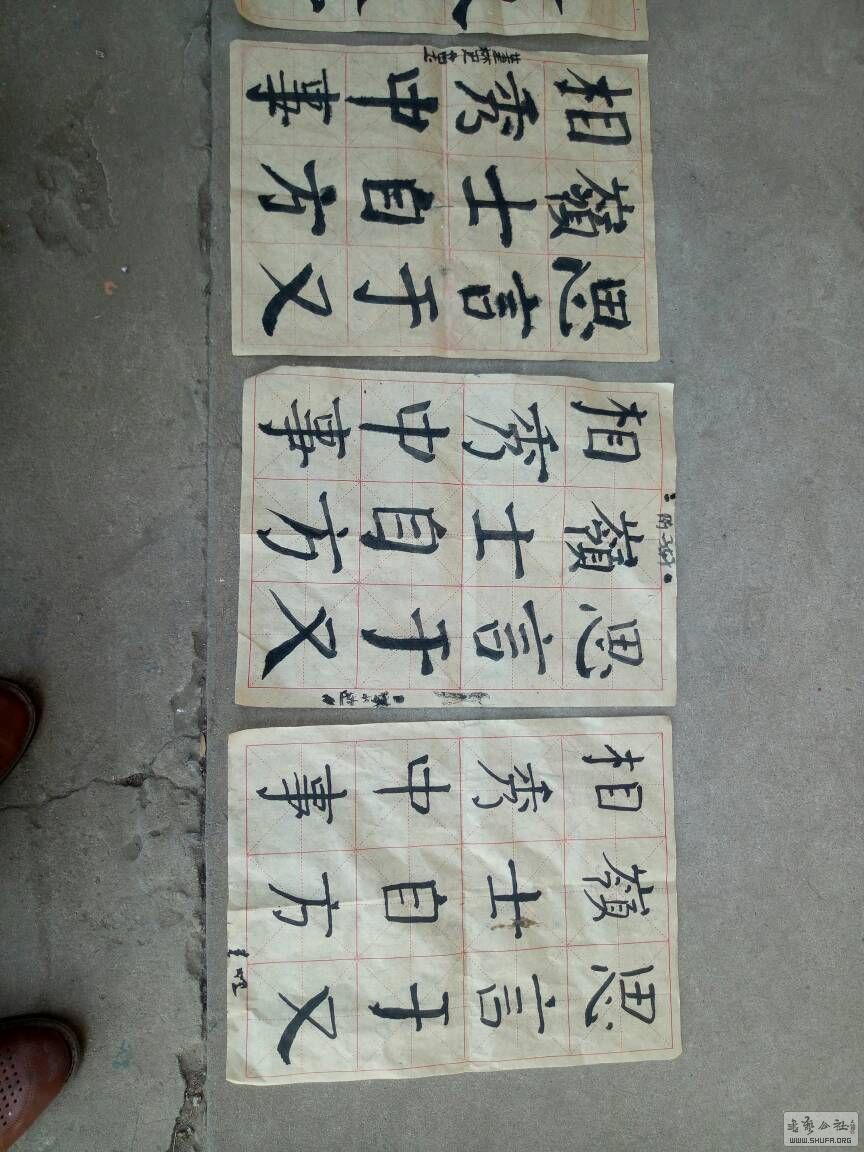 相嶺思
秀士言
中自于
事方又
相嶺思
秀士言
中自于
事方又
相嶺思
秀士言
中自于
事方又
书艺公社
WWW.SHUFA.ORG